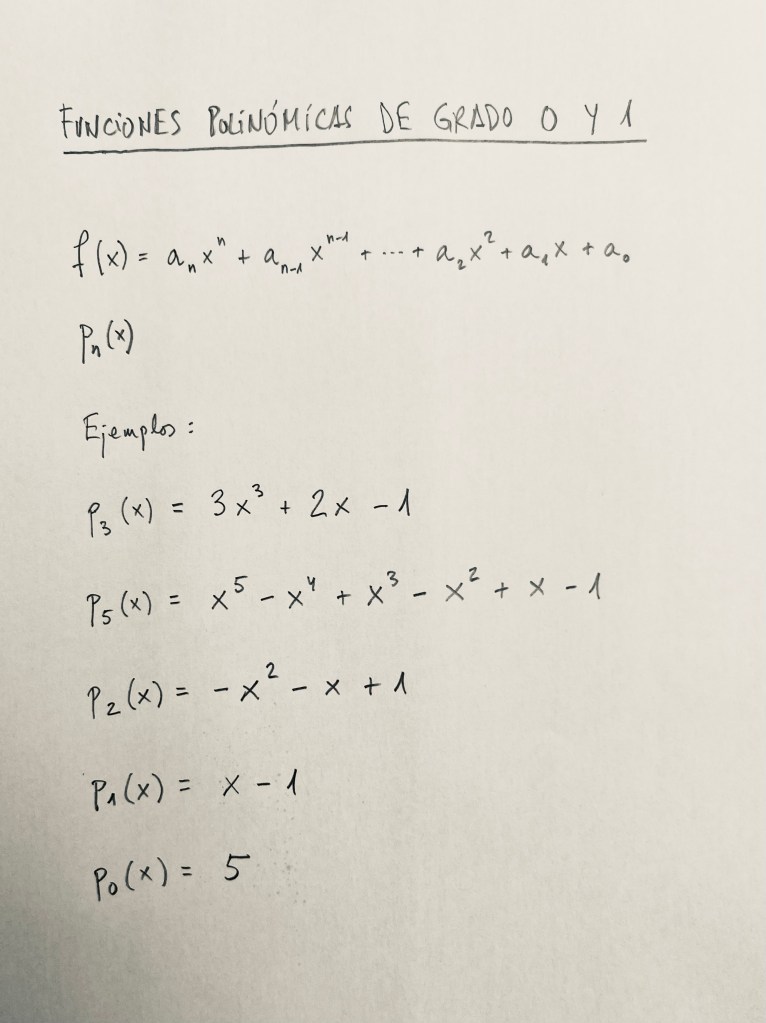 FUNCIONES POLINÓMICAS DE GRADO 0 Y 1
f(x) = aₙxⁿ + aₙ₋₁xⁿ⁻¹ + ... + a₂x² + a₁x + a₀
Pₙ(x)
Ejemplos:
P₃(x) = 3x³ + 2x - 1
P₅(x) = x⁵ - x⁴ + x³ - x² + x - 1
P₂(x) = -x² - x + 1
P₁(x) = x - 1
P₀(x) = 5